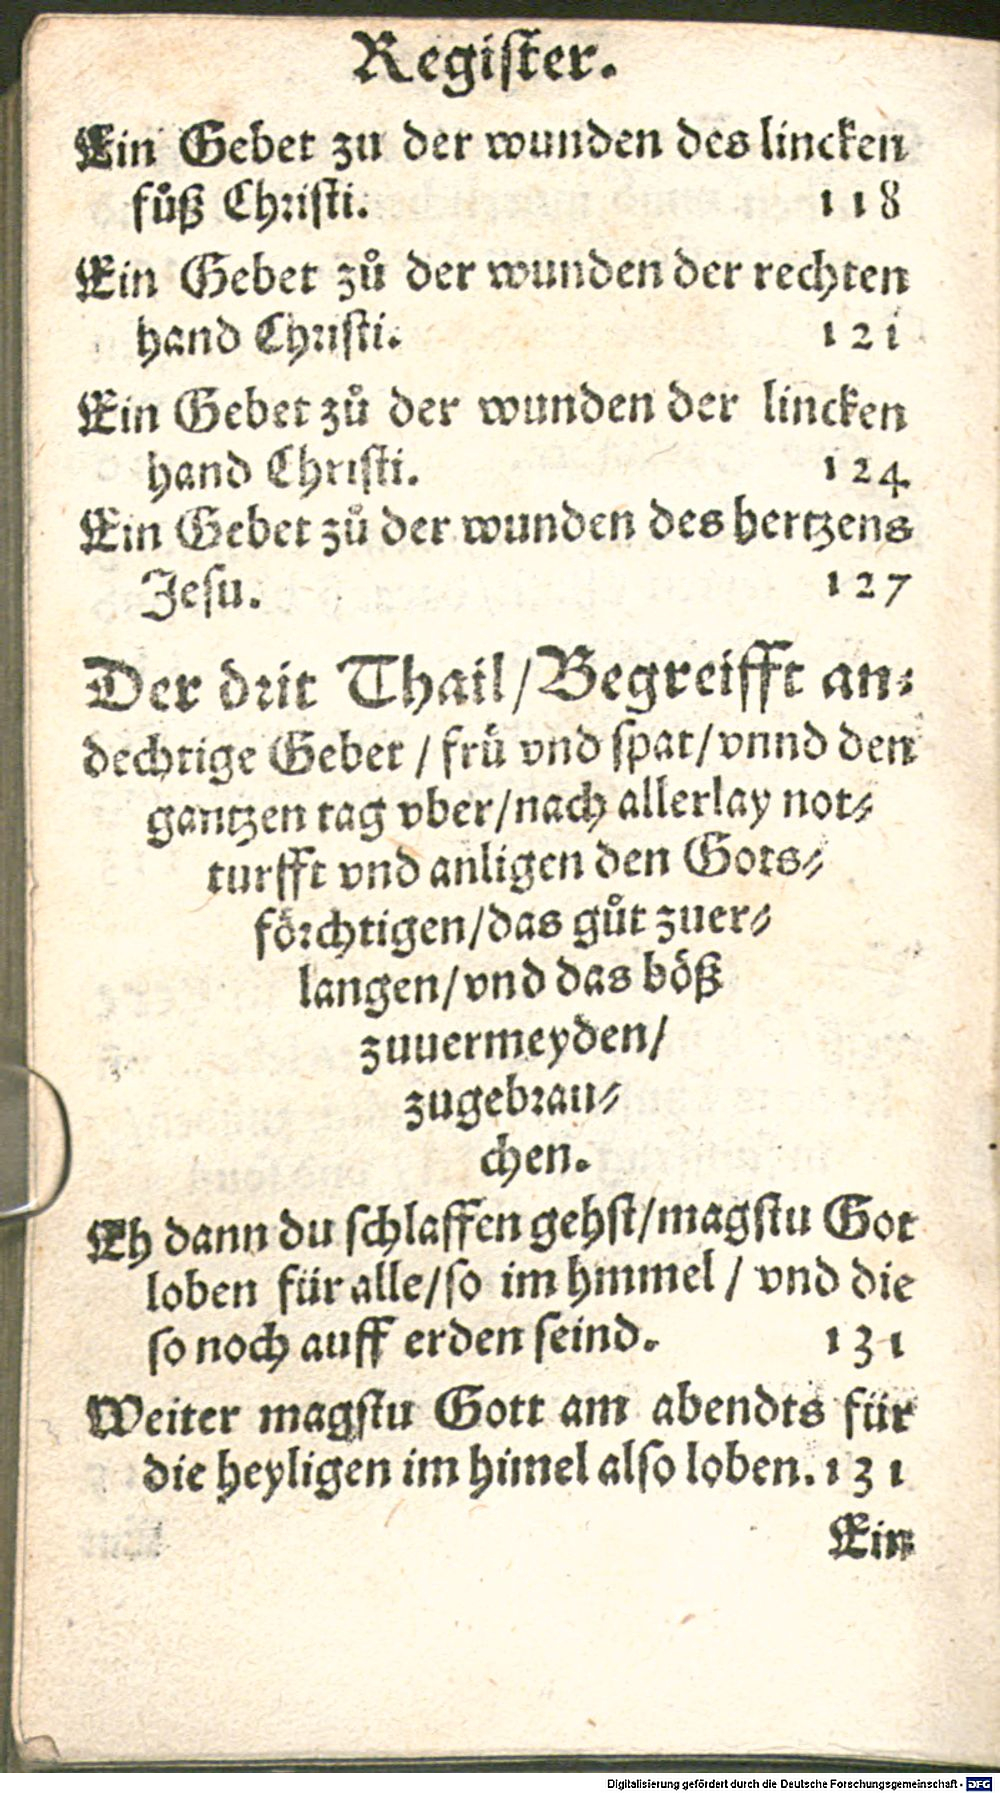 Regiſter.
Ein Gebet zu der wunden des lincken
fůß Chriſti. 118
Ein Gebet zů der wunden der rechten
hand Chriſti. 121
Ein Gebet zů der wunden der lincken
hand Chriſti. 124
Ein Gebet zů der wunden des hertzens
Jeſu. 127
Der drit Thail/Begreifft an⸗
dechtige Gebet / frü vnd ſpat/vnnd den
gantzen tag vber/nach allerlay not⸗
turfft vnd anligen den Gots⸗
förchtigen/das gůt zuer⸗
langen/vnd das böß
zuuermeyden/
zugebrau⸗
chen.
Eh dann du ſchlaffen gehſt/magſtu Got
loben für alle/ſo im hmmel / vnd die
ſo noch auff erden ſeind. 131
Weiter magſtu Gott am abendts für
die heyligen im himel alſo loben. 131
Ein
Digitalisierung gefördert durch die Deutsche Forschungsgemeinschaft - DFG